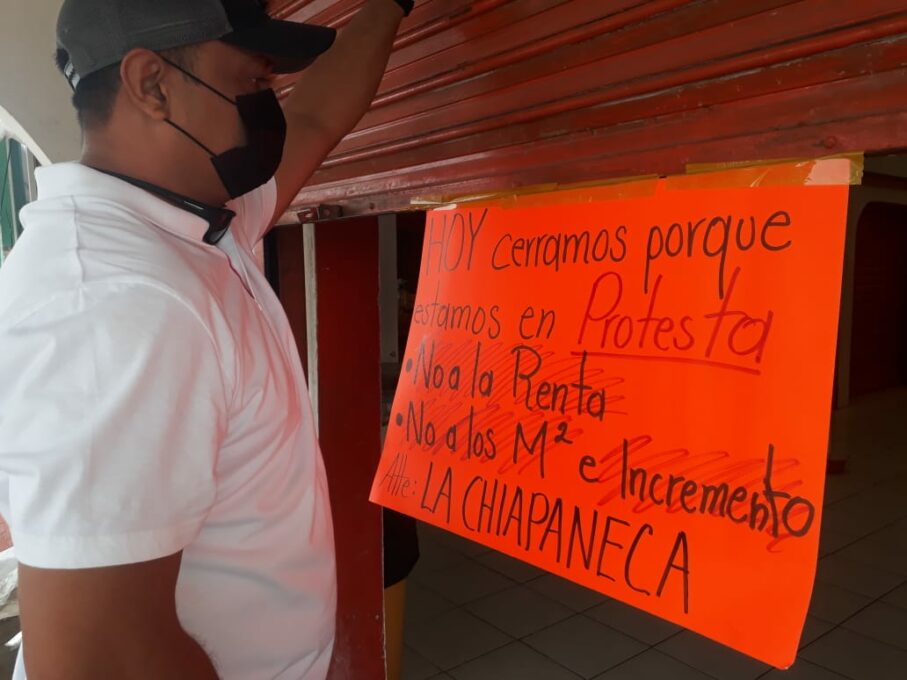 HOY cerramos porque
estamos en Protesta
• No a la Renta
• No a los M² e Incremento
Atte: LA CHIAPANECA